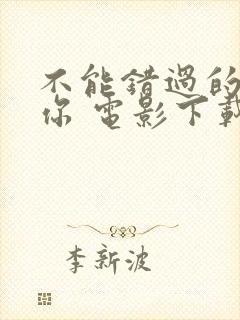 不能錯過的
你 電影下載
李新波